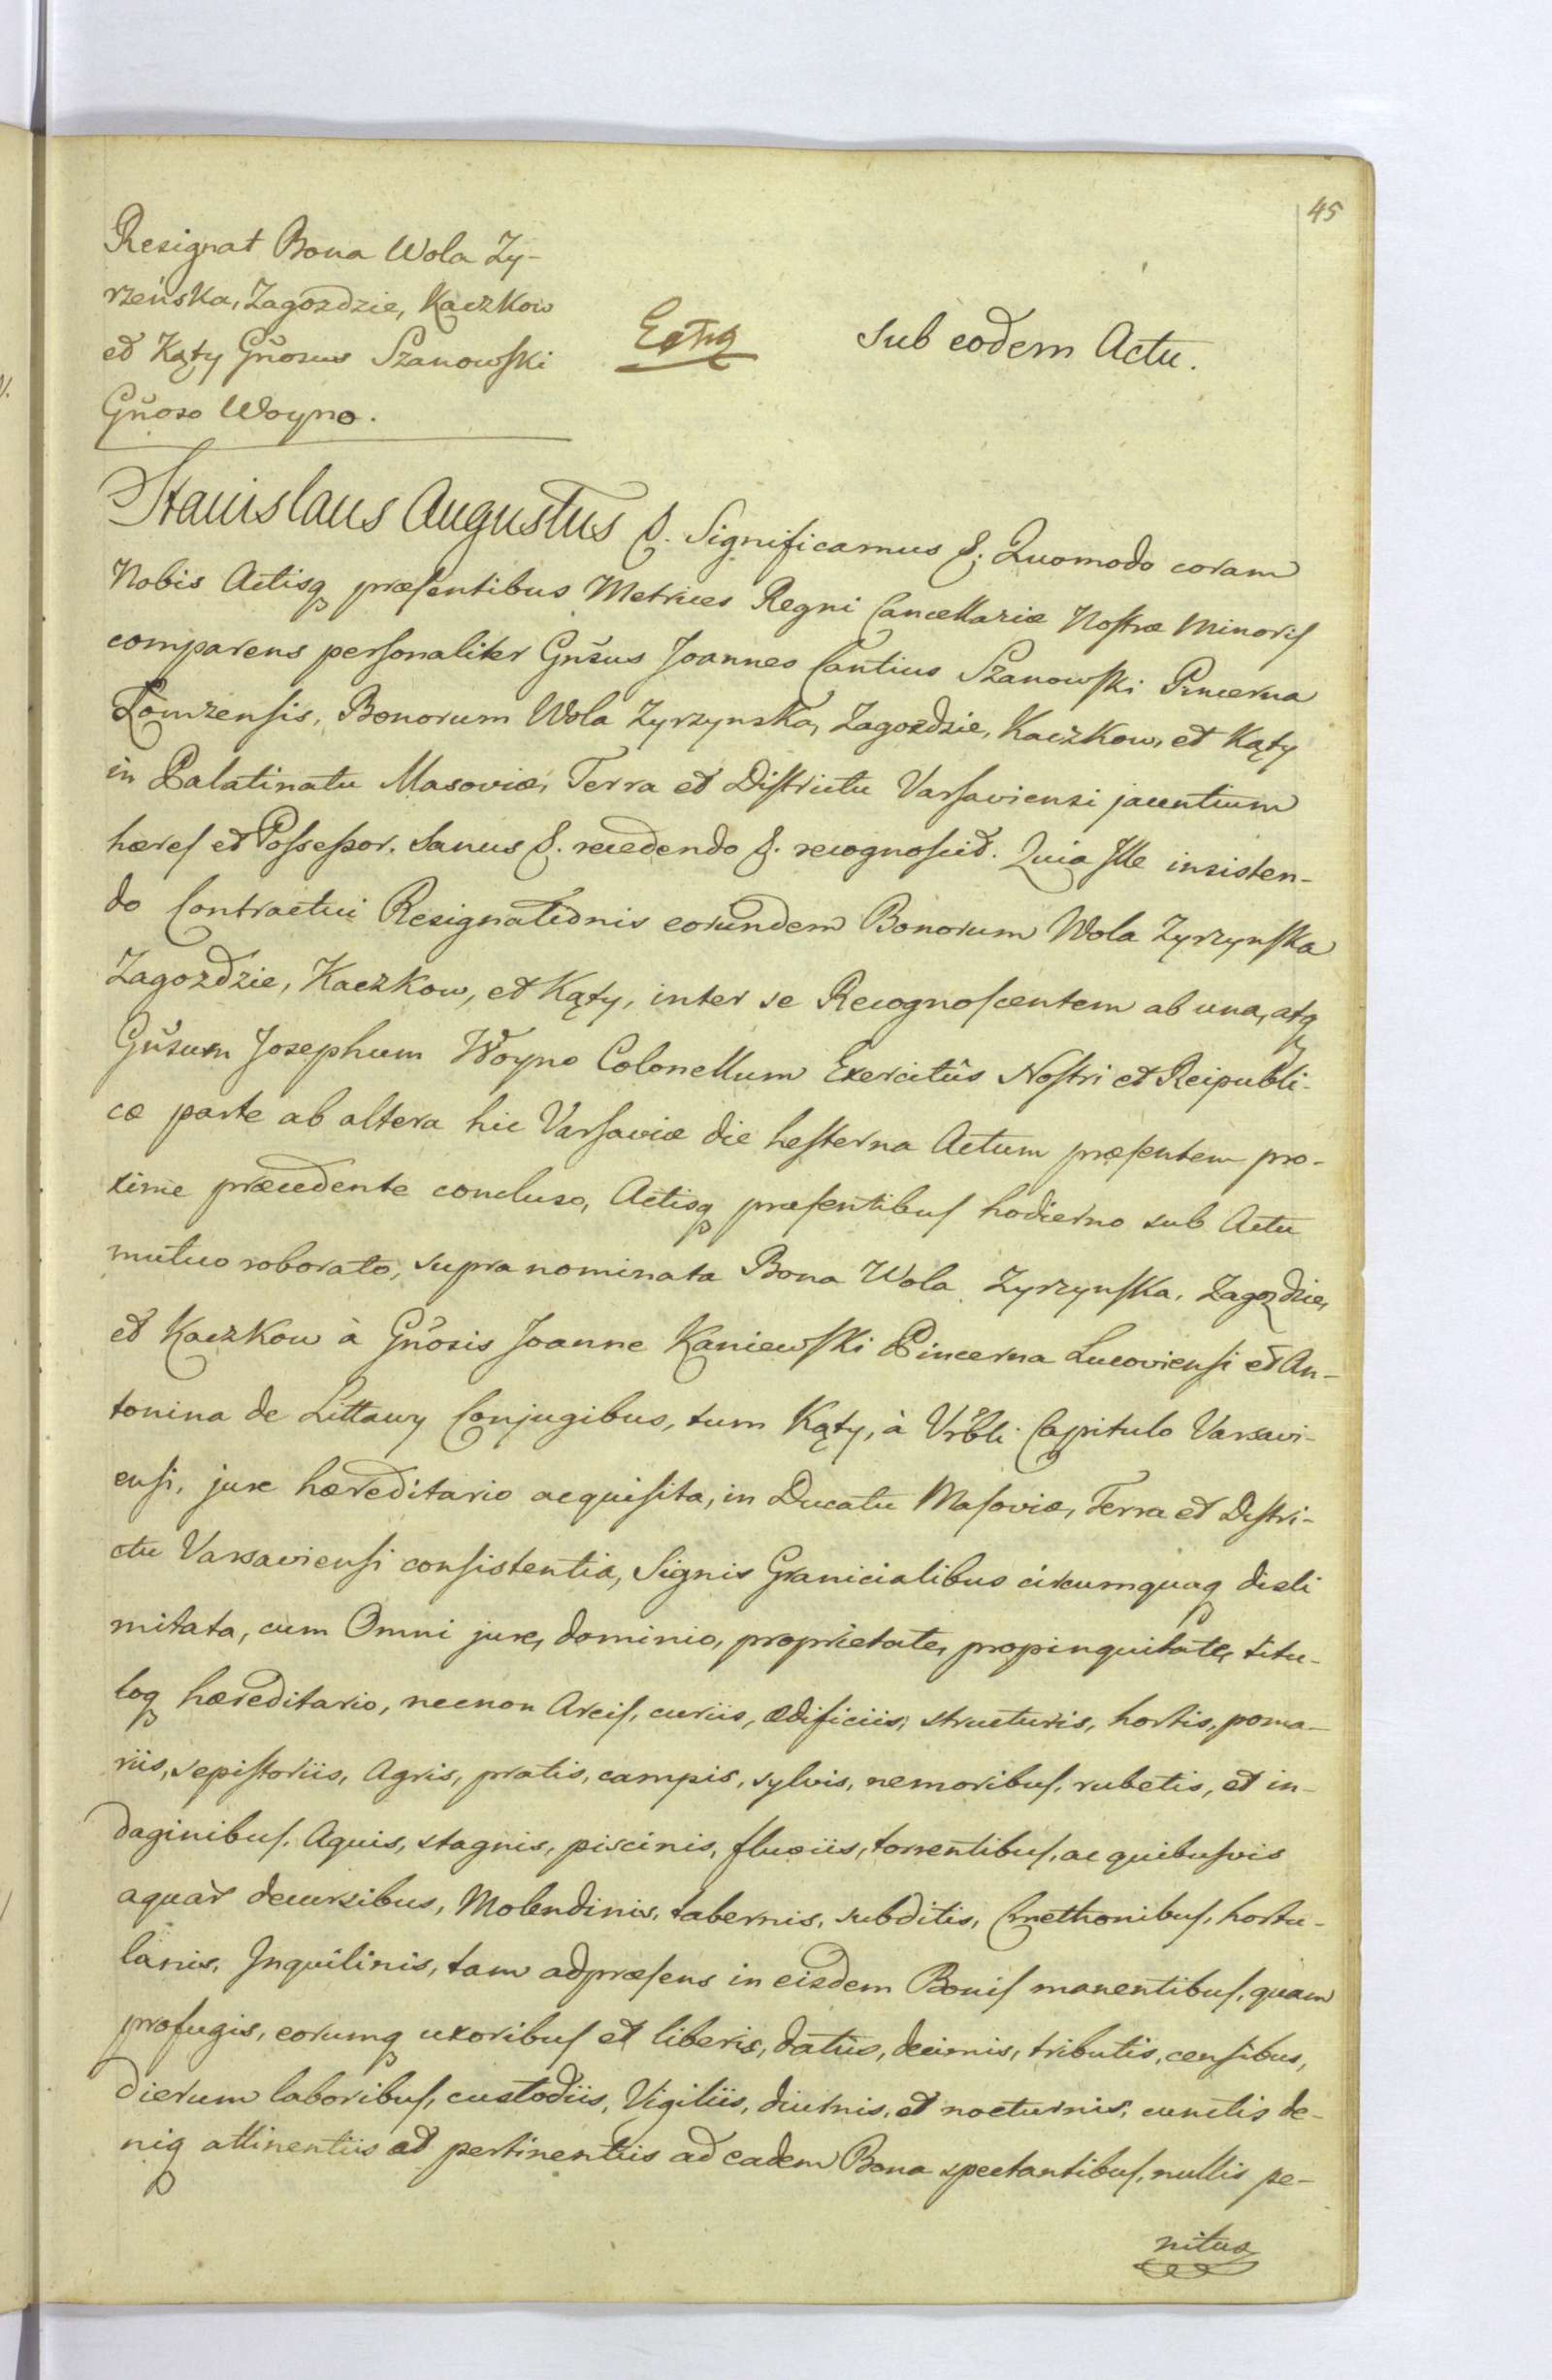 45
Resignat Bona Wola Zy-
rzeńska, Zagozdzie, Kaczkow
et Kąty Gnosus Szanowski
Gnoso Woyno.
Sub eodem Actu.
Stanislaus Augustus &. Significamus &. Quomodo coram
Nobis Actisq præsentibus Metrices Regni Cancellariæ Nostræ Minoris
comparens personaliter Gnsus Joannes Cantius Szanowski Pincerna
Łomzensis, Bonorum Wola Zyrzynska, Zagozdzie, Kaczkow, et Kąty
in Palatinatu Masoviæ, Terra et Districtu Varsaviensi jacentium
hæres et Possessor. Sanus &. recedendo &. recognoscit. Quia Ille insisten-
do Contractui Resignationis eorundem Bonorum Wola Zyrzynska
Zagozdzie, Kaczkow, et Kąty, inter se Recognoscentem ab una, atq
Gnsum Josephum Woyno Colonellum Exercitûs Nostri et Reipubli-
cæ parte ab altera hic Varsaviæ die hesterna Actum præsentem pro-
xime præcedente concluso, Actisq præsentibus hodierno sub Actu
mutuo roborato, supra nominata Bona Wola Zyrzynska, Zagozdzie,
et Kaczkow à Gnosis Joanne Kaniewski Pincerna Lucoviensi et An-
tonina de Littawy Conjugibus, tum Kąty, à Vrbli Capitulo Varsavi-
ensi, jure hæreditario acquisita, in Ducatu Masoviæ, Terra et Distri-
ctu Varsaviensi consistentia, Signis Granicialibus circumquaq disli
mitata, cum Omni jure, dominio, proprietate, propinquitate, titu-
loq hæreditario, necnon Arcis, curiis, ædificiis, structuris, hortis, poma-
riis, sepistoriis, Agris, pratis, campis, sylvis, nemoribus, rubetis, et in-
daginibus, Aquis, stagnis, piscinis, fluviis, torrentibus, ac quibusvis
aquar decursibus, Molendinis, tabernis, subditis, Cmethonibus, hortu-
lanis, Inquilinis, tam adpræsens in eisdem Bonis manentibus, quam
profugis, eorumq uxoribus et liberis, datiis, decimis, tributis, censibus,
dierum laboribus, custodiis, Vigiliis, diurnis, et nocturnis, cunctis de-
niq attinentiis et pertinentiis ad eadem Bona spectantibus, nullis pe-
nitus